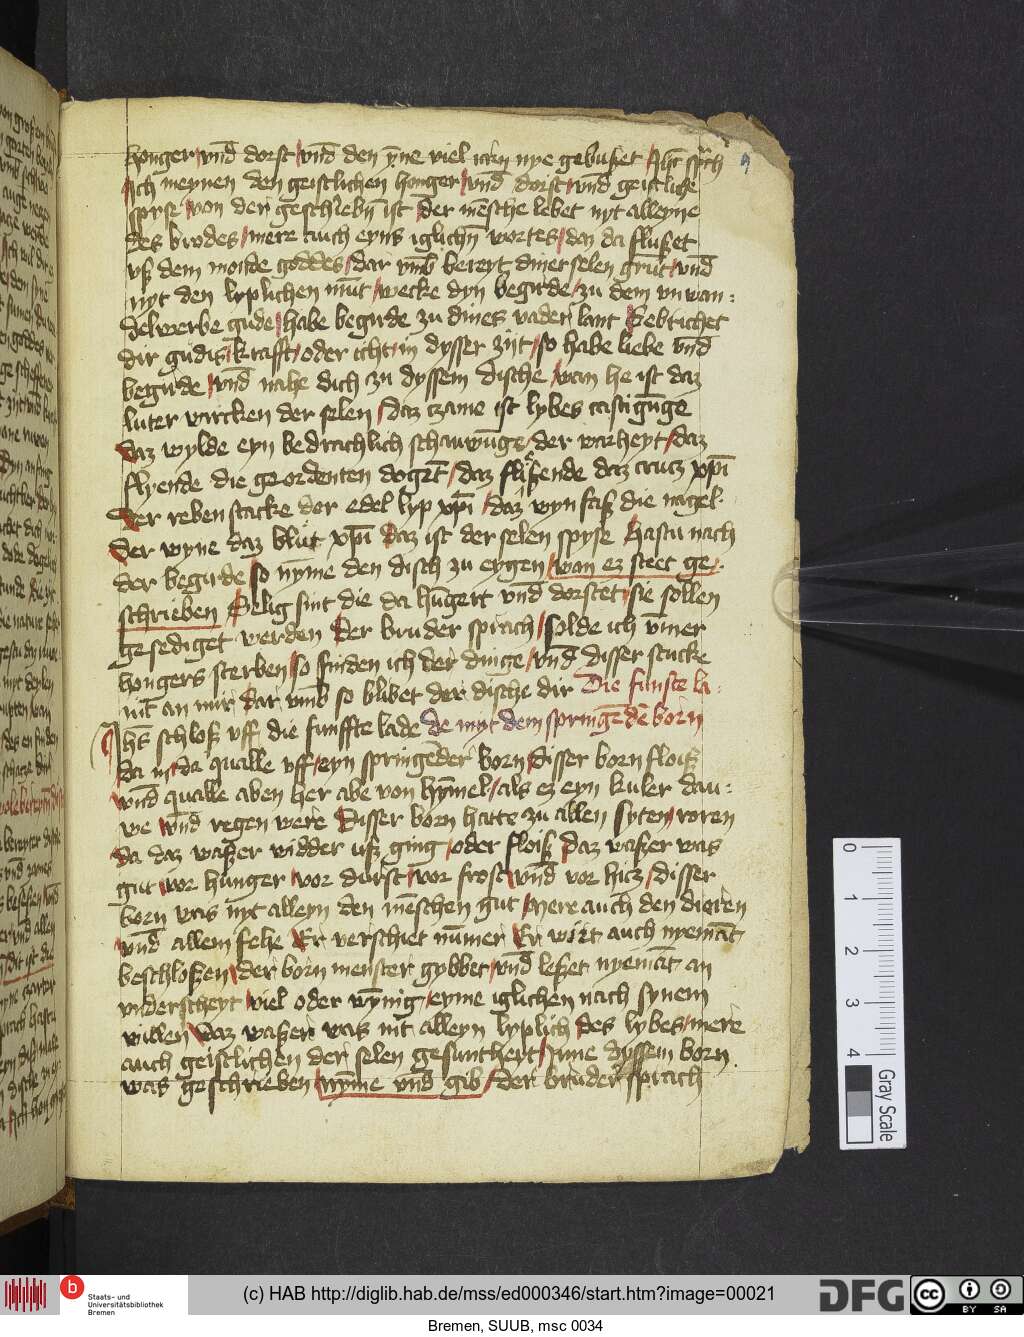 honger vnd dorst vnd den yne viel icht nye gebußet Jhc sprach
Ich meynen den geistlichen honger vnd dorst vnd geistliche
spyse von der geschrieben ist der mensche lebet nyt alleyne
des brodes mere auch eyns iglichn wortes daz da flußet
vß dem monde goddes dar vmb bereyt diner selen grut vnd
nyt den lyplichen mut wecke dyn begirde zu dem vnwan:
delwerbe gude habe begirde zu dines vader lant Gebrichet
dir gudis krafft oder icht in dysser zijt so habe liebe vnd
begirde vnd nahe dich zu dyssem dische wan he ist daz
luter wircken der selen daz czame ist lybes castigunge
daz wylde eyn bedrachlich schauwunge der warheyt daz
flyende die geordenten dogent daz flißende daz crucz xpi
Der reben stacke der edel lyp xpi daz wyn faß die nagel
Der wyne daz blut xpi Daz ist der selen spyse Hastu nach
der begirde so nyme den disch zu eygen wan ez steet ge:
schrieben Selig sint die da hungert vnd dorstet sie sollen
gesediget werden Der bruder sprach solde ich vmer
hongers sterben so finden ich der dinge vnd disser stucke
nit an mir Dar vmb so blibet der dische dir Die funfte la:
Jhs schloß vff die funffte lade de myt dem springenden born
da in da qualle vff eyn springender born Disser born floiß
vnd qualle aben her abe von hymel als ez eyn kuler dau:
we vnd regen were Disser born hatte zu allen syten roren
da daz waßer widder uß ging oder floiß Daz waßer was
gut vor hunger vor durst vor frost vnd vor hicz disser
born was nyt alleyn den menschen gut Mere auch den dieren
vnd allem fehe Er verschiet nummer Er wirt auch nyemant
beschloßen der born meinster gybbet vnd leßet nyemant an
vnderscheyt viel oder wynnig eyme iglichen nach synem
willen Daz waßer was nit alleyn lyplich des lybes mere
auch geistlichen der selen gesuntheyt Inne dyssem born
was geschrieben nyme vnd gib der bruder sprach
9
0
1
2
3
4
Gray Scale
b
Staats- und
Universitätsbibliothek
Bremen
(c) HAB http://diglib.hab.de/mss/ed000346/start.htm?image=00021
DFG
cc
BY SA
Bremen, SUUB, msc 0034